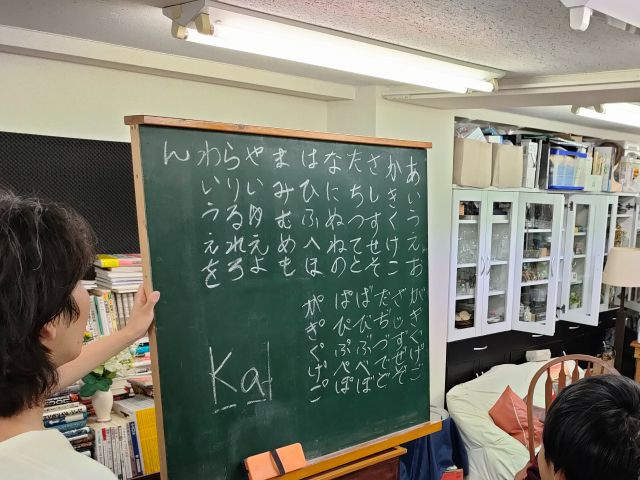 あいうえお
かきくけこ
さしすせそ
たちつてと
なにぬねの
はひふへほ
まみむめも
やいゆえよ
らりるれろ
わいうえを
ん
がぎぐげご
ざじずぜぞ
だぢづでど
ばびぶべぼ
ぱぴぷぺぽ
か゚き゚く゚け゚こ゚
Ka